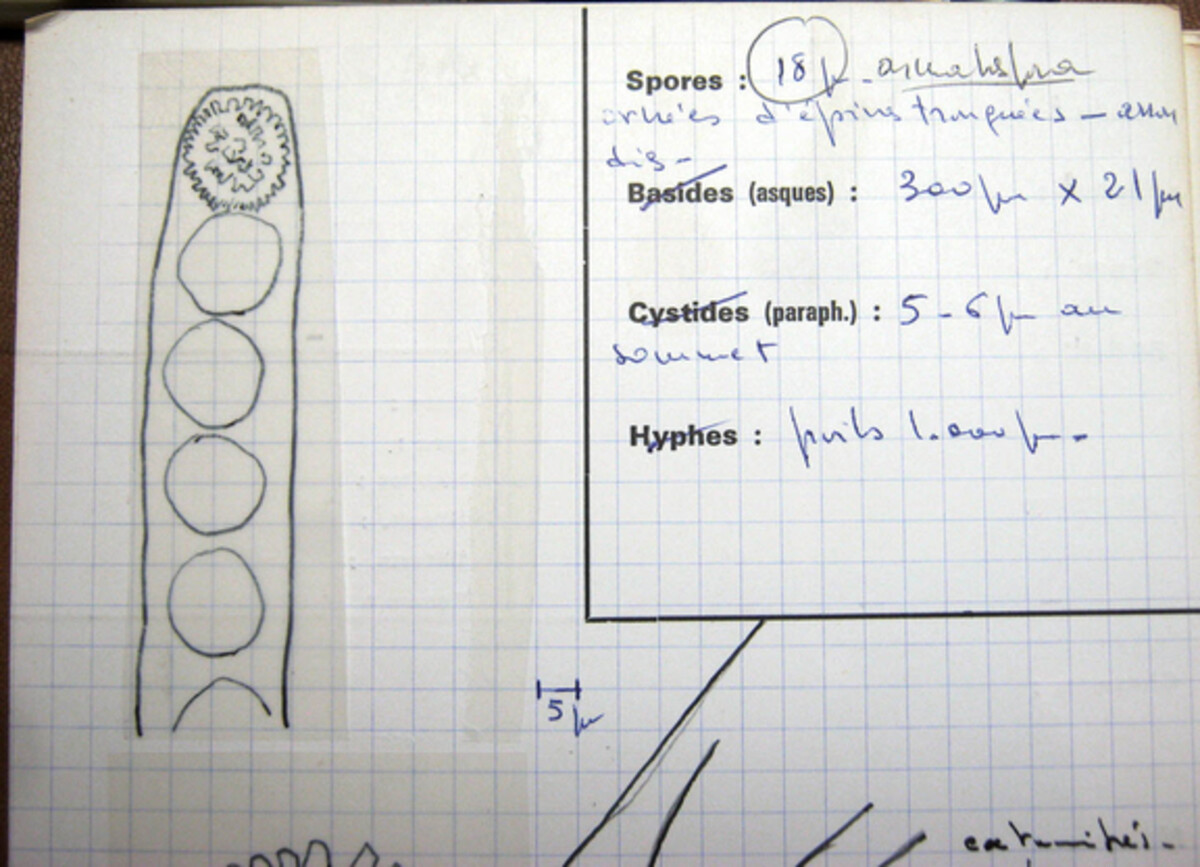 Spores : 18 µ -
ornées d'épines tronquées -
Basides (asques) : 300 µm x 21 µm
Cystides (paraph.) : 5 - 6 µ au
sommet
Hyphes : poils 1.000 µ -
5 µ
extrémités -